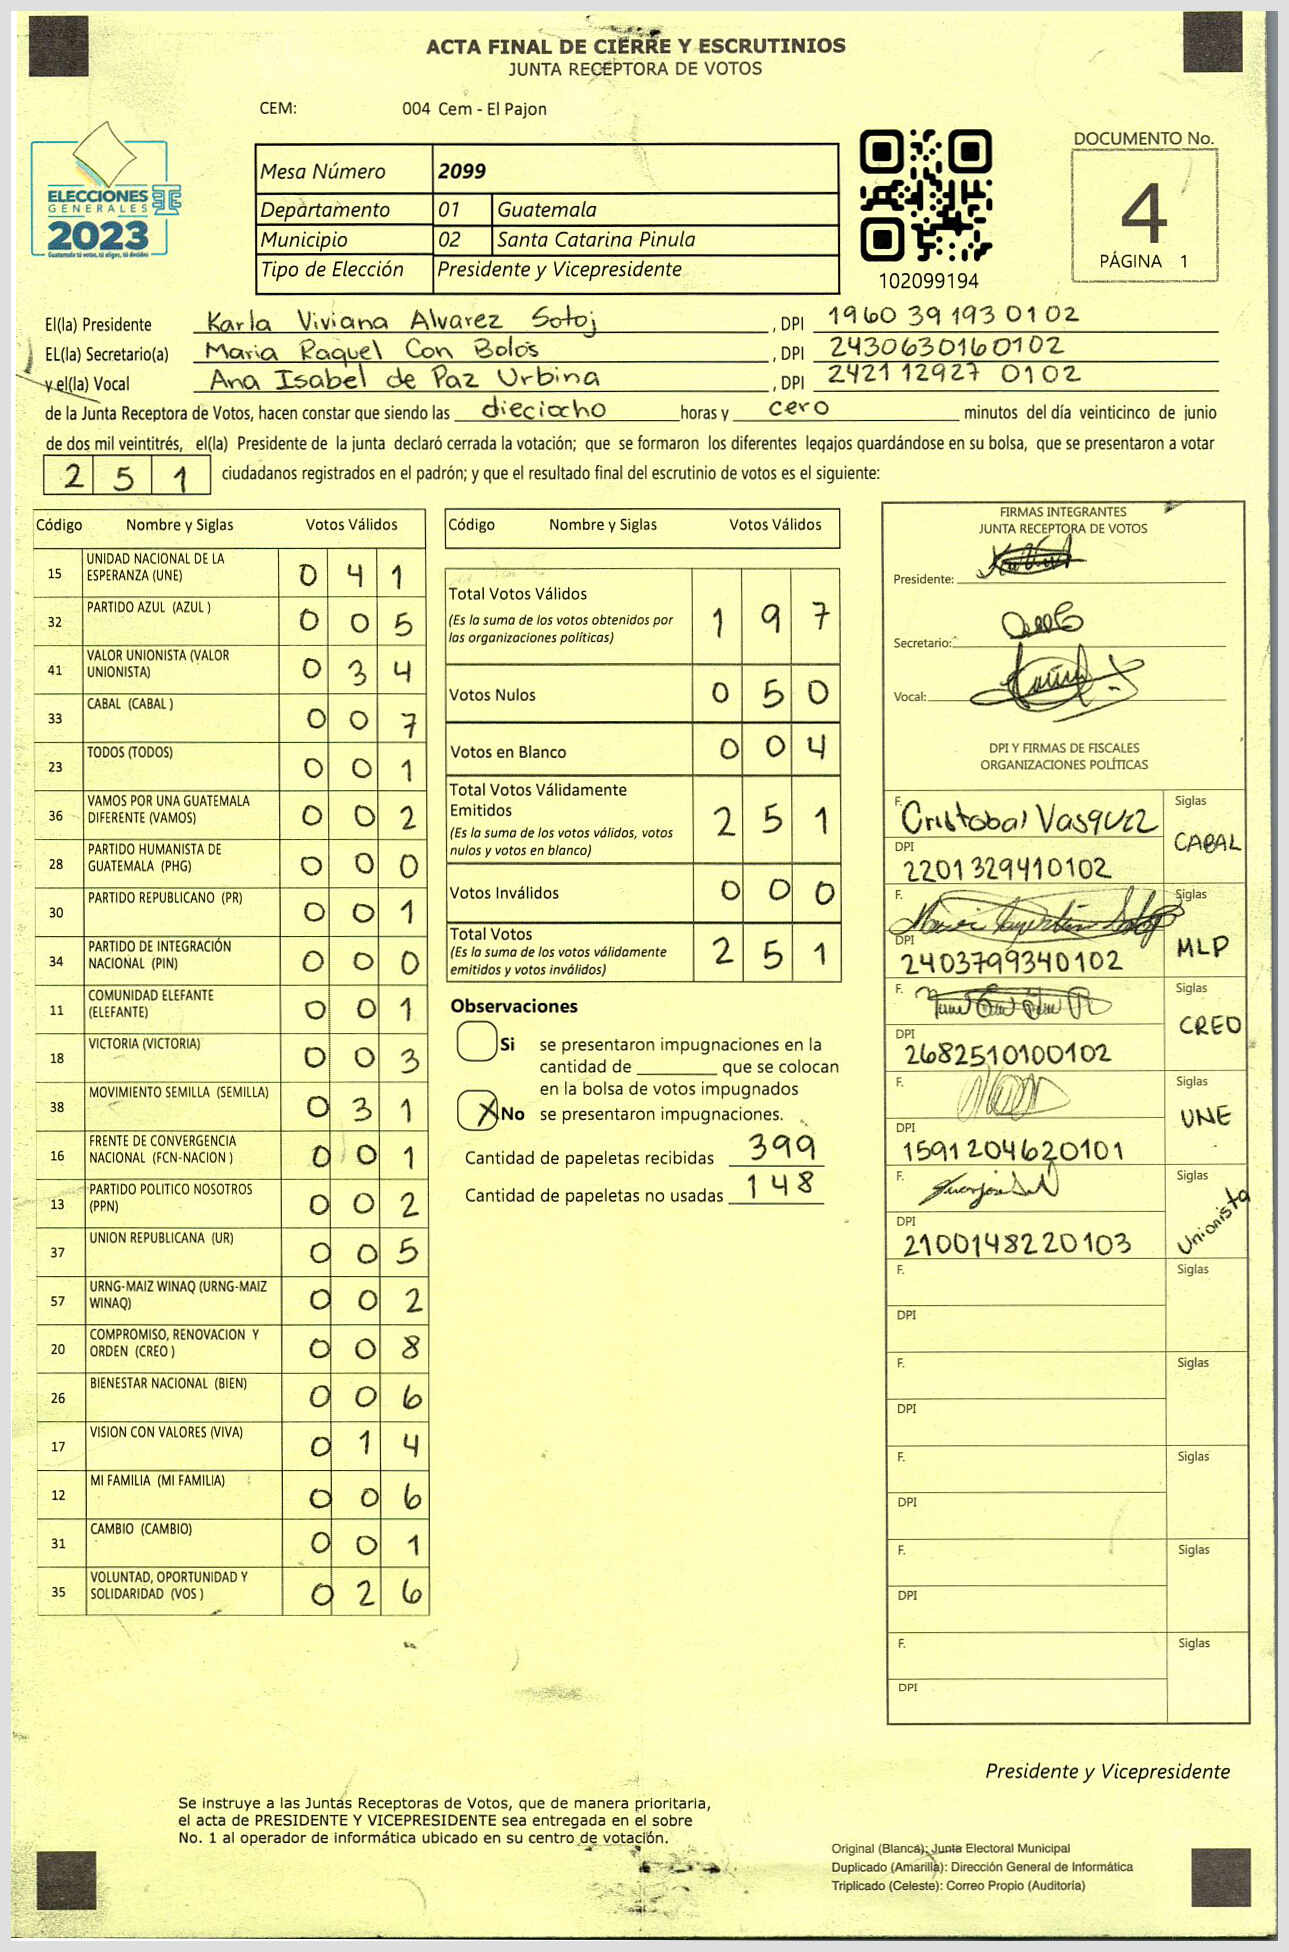 ACTA FINAL DE CIERRE Y ESCRUTINIOS
JUNTA RECEPTORA DE VOTOS
CEM: 004 Cem - El Pajon
ELECCIONES
GENERALES
2023
Guatemala tú votas, tú eliges, tú decides
Mesa Número 2099
Departamento 01 Guatemala
Municipio 02 Santa Catarina Pinula
Tipo de Elección Presidente y Vicepresidente
102099194
DOCUMENTO No.
4
PÁGINA 1
El(la) Presidente Karla Viviana Alvarez Sotoj , DPI 1960 39 193 0102
EL(la) Secretario(a) Maria Raquel Con Bolos , DPI 2430630160102
y el(la) Vocal Ana Isabel de Paz Urbina , DPI 2421 12927 0102
de la Junta Receptora de Votos, hacen constar que siendo las dieciocho horas y cero minutos del día veinticinco de junio
de dos mil veintitrés, el(la) Presidente de la junta declaró cerrada la votación; que se formaron los diferentes legajos guardándose en su bolsa, que se presentaron a votar
2 5 1 ciudadanos registrados en el padrón; y que el resultado final del escrutinio de votos es el siguiente:
Código Nombre y Siglas Votos Válidos
15 UNIDAD NACIONAL DE LA ESPERANZA (UNE) 0 4 1
32 PARTIDO AZUL (AZUL ) 0 0 5
41 VALOR UNIONISTA (VALOR UNIONISTA) 0 3 4
33 CABAL (CABAL ) 0 0 7
23 TODOS (TODOS) 0 0 1
36 VAMOS POR UNA GUATEMALA DIFERENTE (VAMOS) 0 0 2
28 PARTIDO HUMANISTA DE GUATEMALA (PHG) 0 0 0
30 PARTIDO REPUBLICANO (PR) 0 0 1
34 PARTIDO DE INTEGRACIÓN NACIONAL (PIN) 0 0 0
11 COMUNIDAD ELEFANTE (ELEFANTE) 0 0 1
18 VICTORIA (VICTORIA) 0 0 3
38 MOVIMIENTO SEMILLA (SEMILLA) 0 3 1
16 FRENTE DE CONVERGENCIA NACIONAL (FCN-NACION ) 0 0 1
13 PARTIDO POLITICO NOSOTROS (PPN) 0 0 2
37 UNION REPUBLICANA (UR) 0 0 5
57 URNG-MAIZ WINAQ (URNG-MAIZ WINAQ) 0 0 2
20 COMPROMISO, RENOVACION Y ORDEN (CREO ) 0 0 8
26 BIENESTAR NACIONAL (BIEN) 0 0 6
17 VISION CON VALORES (VIVA) 0 1 4
12 MI FAMILIA (MI FAMILIA) 0 0 6
31 CAMBIO (CAMBIO) 0 0 1
35 VOLUNTAD, OPORTUNIDAD Y SOLIDARIDAD (VOS ) 0 2 6
Código Nombre y Siglas Votos Válidos
Total Votos Válidos 1 9 7
(Es la suma de los votos obtenidos por
las organizaciones políticas)
Votos Nulos 0 5 0
Votos en Blanco 0 0 4
Total Votos Válidamente
Emitidos 2 5 1
(Es la suma de los votos válidos, votos
nulos y votos en blanco)
Votos Inválidos 0 0 0
Total Votos 2 5 1
(Es la suma de los votos válidamente
emitidos y votos inválidos)
Observaciones
Si se presentaron impugnaciones en la
cantidad de ________ que se colocan
en la bolsa de votos impugnados
X No se presentaron impugnaciones.
Cantidad de papeletas recibidas 399
Cantidad de papeletas no usadas 148
FIRMAS INTEGRANTES
JUNTA RECEPTORA DE VOTOS
Presidente:
Secretario:
Vocal:
DPI Y FIRMAS DE FISCALES
ORGANIZACIONES POLÍTICAS
F. Cristobal Vasquez Siglas CABAL
DPI 2201329410102
F. Siglas MLP
DPI 2403799340102
F. Siglas CREO
DPI 2682510100102
F. Siglas UNE
DPI 1591204620101
F. Siglas Unionista
DPI 2100148220103
F. Siglas
DPI
F. Siglas
DPI
F. Siglas
DPI
F. Siglas
DPI
F. Siglas
DPI
Presidente y Vicepresidente
Se instruye a las Juntas Receptoras de Votos, que de manera prioritaria,
el acta de PRESIDENTE Y VICEPRESIDENTE sea entregada en el sobre
No. 1 al operador de informática ubicado en su centro de votación.
Original (Blanca): Junta Electoral Municipal
Duplicado (Amarilla): Dirección General de Informática
Triplicado (Celeste): Correo Propio (Auditoría)